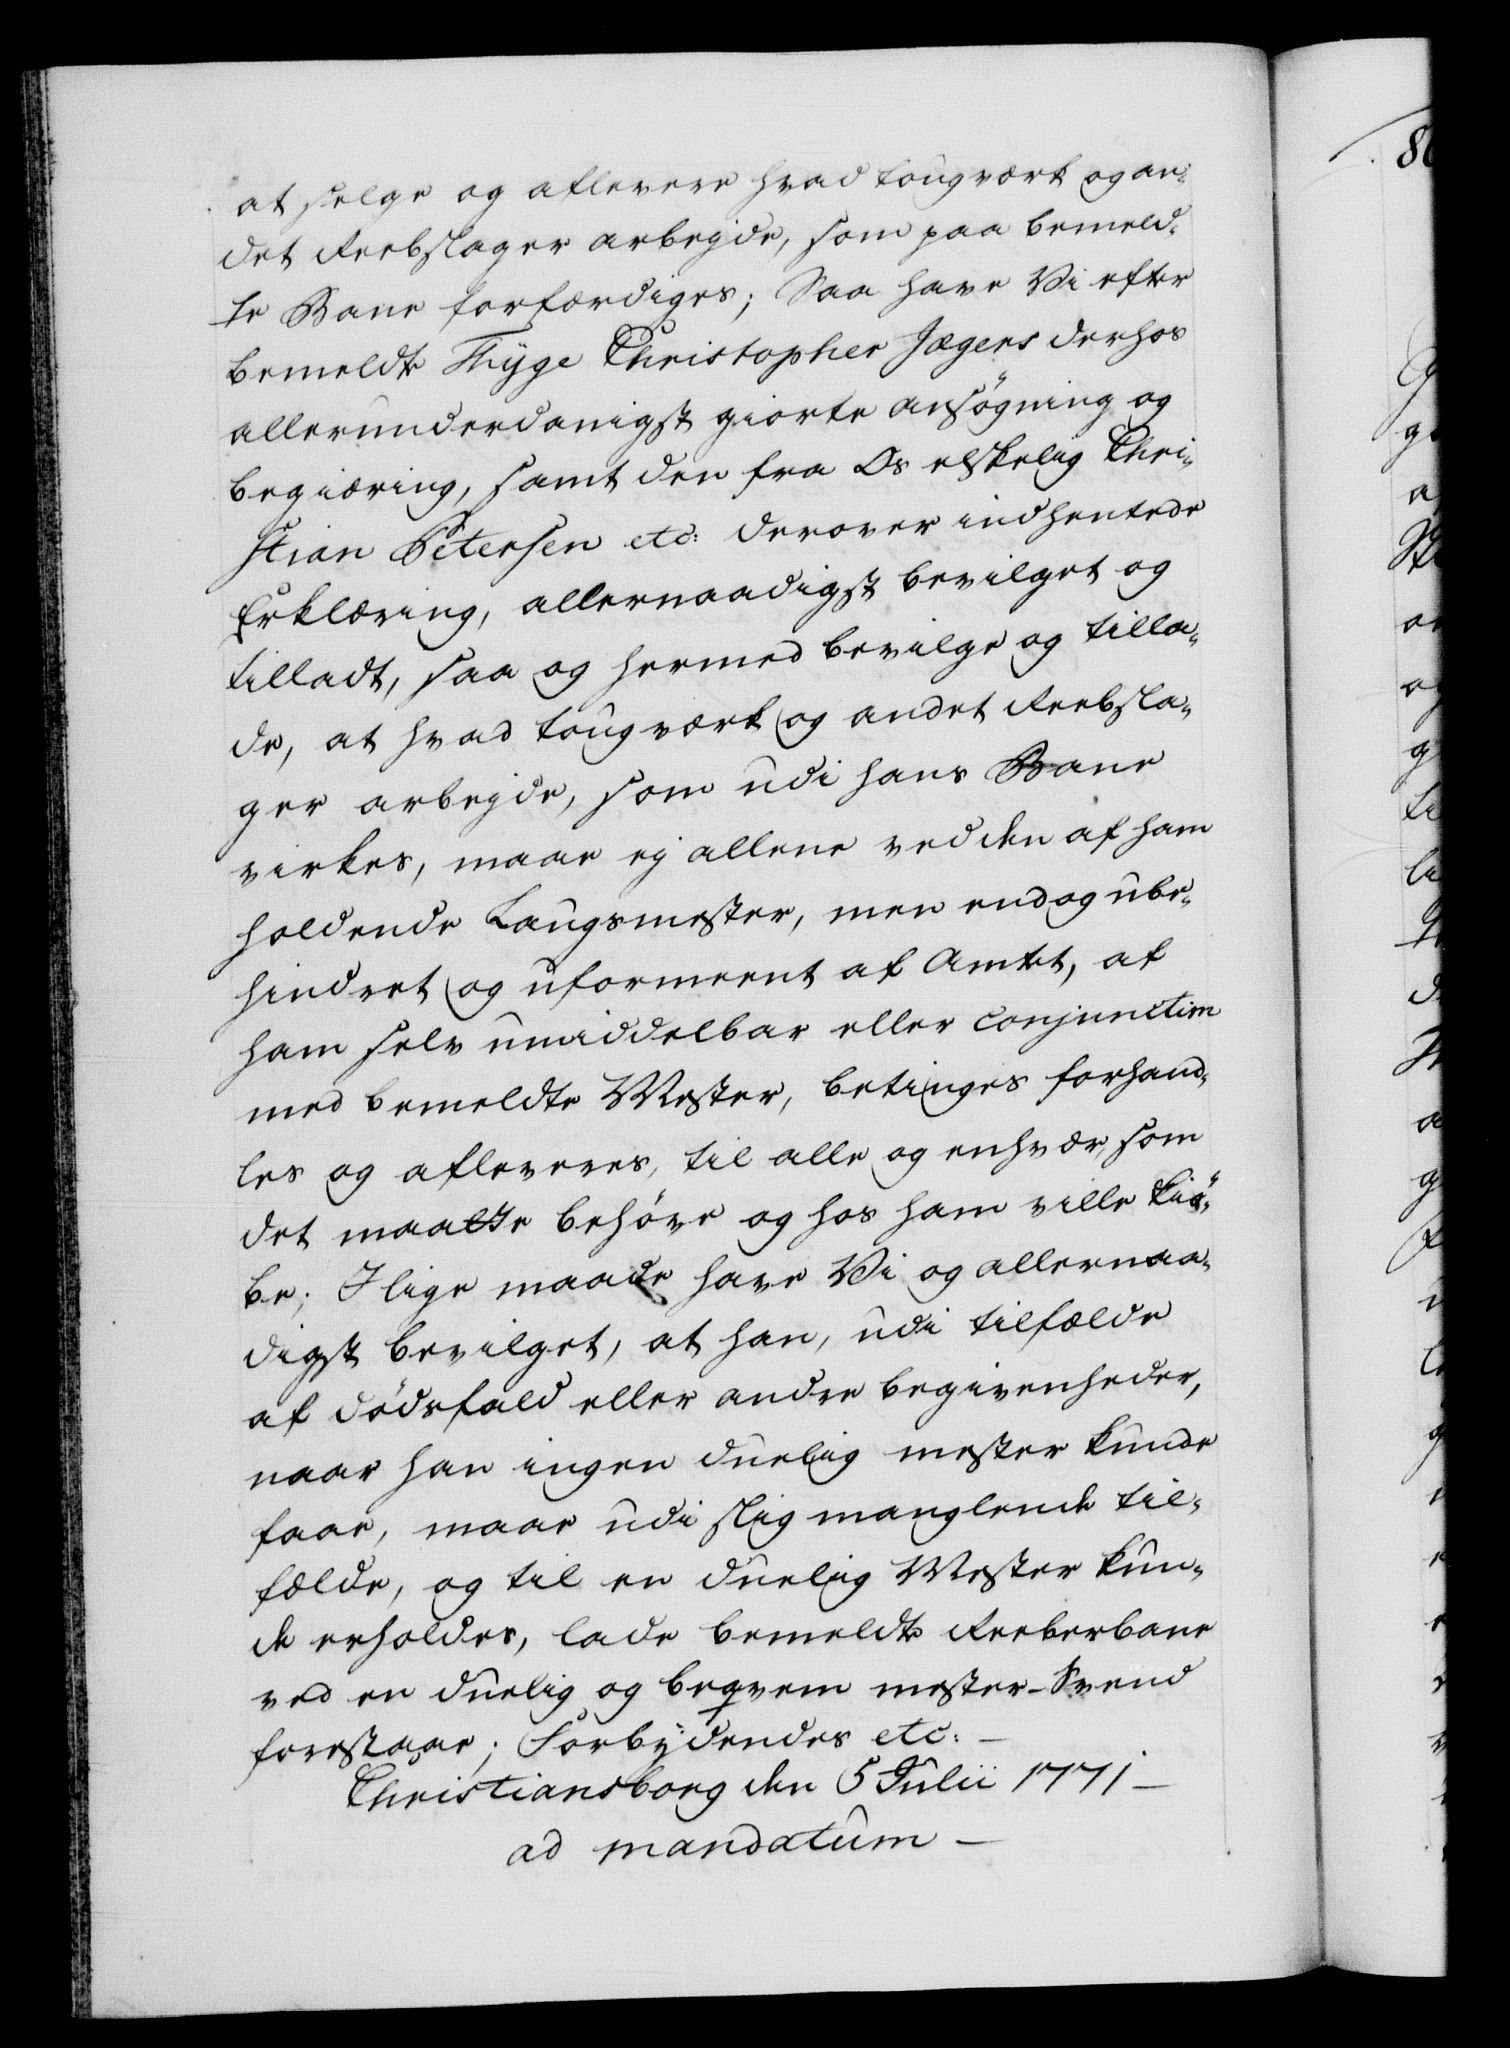 at selge og aflevere hvad tougværk og an-
det Reebslager arbejde, som paa bemeld-
te Bane forfærdiges; Saa have Vi efter
bemeldte Thyge Christopher Jægers derhos
allerunderdanigst giorte ansøgning og
begiæring, samt den fra Os elskelig Chri-
stian Petersen etc: derover indhentede
Erklæring, allernaadigst bevilget og
tilladt, saa og hermed bevilge og tilla-
de, at hvad tougværk og andet Reebsla-
ger arbejde, som udi hans Bane
virkes, maae ej allene ved den af ham
holdende Laugsmester, men endog ube-
hindret og uformeent af Amtet, af
ham selv umiddelbar eller conjunctim
med bemeldte Mester, betinges forhand-
les og afleveres, til alle og enhver, som
det maatte behøve og hos ham ville kiø-
be; I lige maade have Vi og allernaa-
digst bevilget, at han, udi tilfælde
af dødsfald eller andre begivenheder,
naar han ingen duelig mester kunde
faae, maae udi slig manglende til-
fælde, og til en duelig Mester kun-
de erholdes, lade bemeldte Reeberbane
ved en duelig og beqvem mester-Svend
forestaae; Forbydendes etc: –
Christiansborg den 5 Julii 1771 –
ad mandatum –